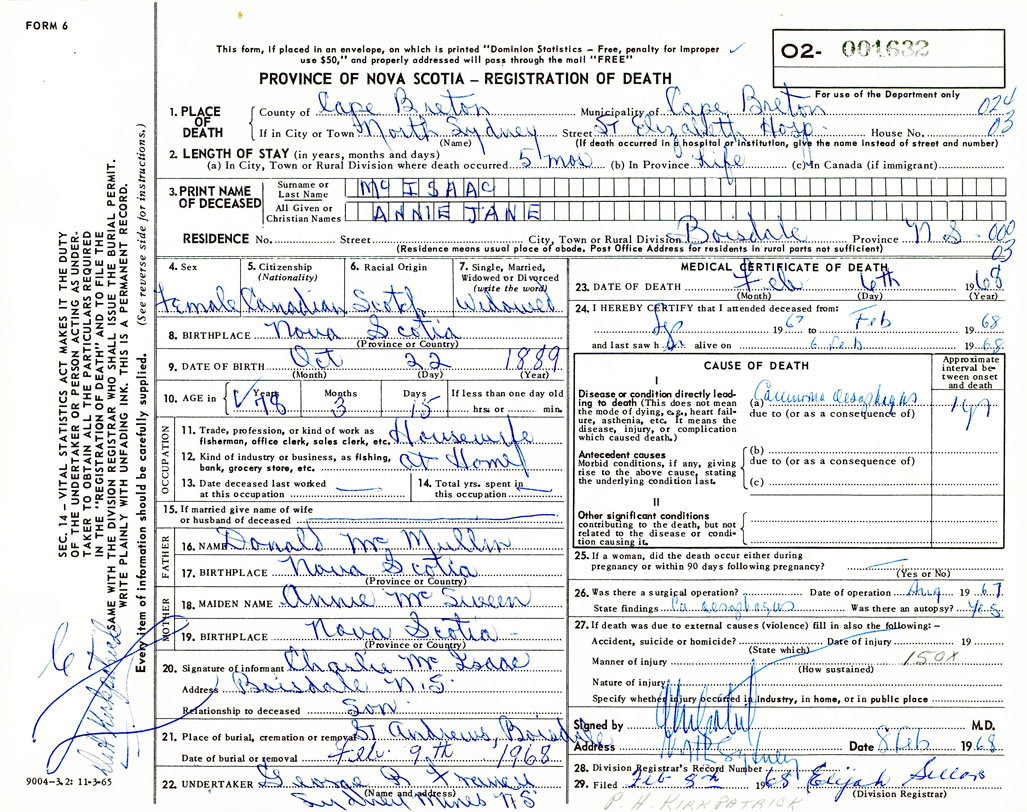 FORM 6
This form, if placed in an envelope, on which is printed "Dominion Statistics – Free, penalty for improper
use $50," and properly addressed will pass through the mail "FREE"
02- 001632
For use of the Department only
PROVINCE OF NOVA SCOTIA – REGISTRATION OF DEATH
024
03
1. PLACE OF DEATH
County of Cape Breton Municipality of Cape Breton
If in City or Town North Sydney Street St Elizabeth Hosp. House No.
(Name) (If death occurred in a hospital or institution, give the name instead of street and number)
2. LENGTH OF STAY (in years, months and days)
(a) In City, Town or Rural Division where death occurred 5 mos (b) In Province Life (c) In Canada (if immigrant)
3. PRINT NAME OF DECEASED
Surname or Last Name Mc ISAAC
All Given or Christian Names ANNIE JANE
RESIDENCE No. Street City, Town or Rural Division Boisdale Province N S - 000
03
(Residence means usual place of abode. Post Office Address for residents in rural parts not sufficient)
4. Sex Female
5. Citizenship (Nationality) Canadian
6. Racial Origin Scotch
7. Single, Married, Widowed or Divorced (write the word) Widowed
8. BIRTHPLACE Nova Scotia
(Province or Country)
9. DATE OF BIRTH Oct 22 1889
(Month) (Day) (Year)
10. AGE in Years 78 Months 3 Days 15 If less than one day old
hrs. or min.
OCCUPATION
11. Trade, profession, or kind of work as
fisherman, office clerk, sales clerk, etc. Housewife
12. Kind of industry or business, as fishing,
bank, grocery store, etc. at Home
13. Date deceased last worked
at this occupation
14. Total yrs. spent in
this occupation
15. If married give name of wife
or husband of deceased
FATHER
16. NAME Donald Mc Mullin
17. BIRTHPLACE Nova Scotia
(Province or Country)
MOTHER
18. MAIDEN NAME Annie Mc Sween
19. BIRTHPLACE Nova Scotia
(Province or Country)
20. Signature of informant Charlie Mc Isaac
Address Boisdale N.S.
Relationship to deceased Son
21. Place of burial, cremation or removal St Andrews, Boisdale
Date of burial or removal Feb. 9th 1968
22. UNDERTAKER George B
(Name and address)
Sydney Mines N S
MEDICAL CERTIFICATE OF DEATH
23. DATE OF DEATH Feb 6th 1968
(Month) (Day) (Year)
24. I HEREBY CERTIFY that I attended deceased from:
Sep 1967 to Feb 1968
and last saw her alive on 6 Feb 1968
CAUSE OF DEATH
Approximate interval between onset and death
I
Disease or condition directly leading
to death (This does not mean
the mode of dying, e.g., heart failure,
asthenia, etc. It means the
disease, injury, or complication
which caused death.)
(a) Carcinoma oesophagus 1 yr
due to (or as a consequence of)
Antecedent causes
Morbid conditions, if any, giving
rise to the above cause, stating
the underlying condition last.
(b)
due to (or as a consequence of)
(c)
II
Other significant conditions
contributing to the death, but not
related to the disease or condition
causing it.
25. If a woman, did the death occur either during
pregnancy or within 90 days following pregnancy?
(Yes or No)
26. Was there a surgical operation? Date of operation Aug 1967
State findings Ca oesophagus Was there an autopsy? Yes
27. If death was due to external causes (violence) fill in also the following: –
Accident, suicide or homicide? Date of injury 19
(State which)
Manner of injury 150X
(How sustained)
Nature of injury
Specify whether injury occurred in industry, in home, or in public place
Signed by M.D.
Address Nth Sydney Date 8 Feb 1968
28. Division Registrar's Record Number
29. Filed Feb 8th 1968 Elijah
(Division Registrar)
P. H. KIRKPATRICK
SEC. 14 – VITAL STATISTICS ACT MAKES IT THE DUTY
OF THE UNDERTAKER OR PERSON ACTING AS UNDERTAKER
TO OBTAIN ALL THE PARTICULARS REQUIRED
IN THE "REGISTRATION OF DEATH" AND TO FILE THE
SAME WITH THE DIVISION REGISTRAR WHO SHALL ISSUE THE BURIAL PERMIT.
WRITE PLAINLY WITH UNFADING INK. THIS IS A PERMANENT RECORD.
Every item of information should be carefully supplied. (See reverse side for instructions.)
9004-3.2: 11-3-65